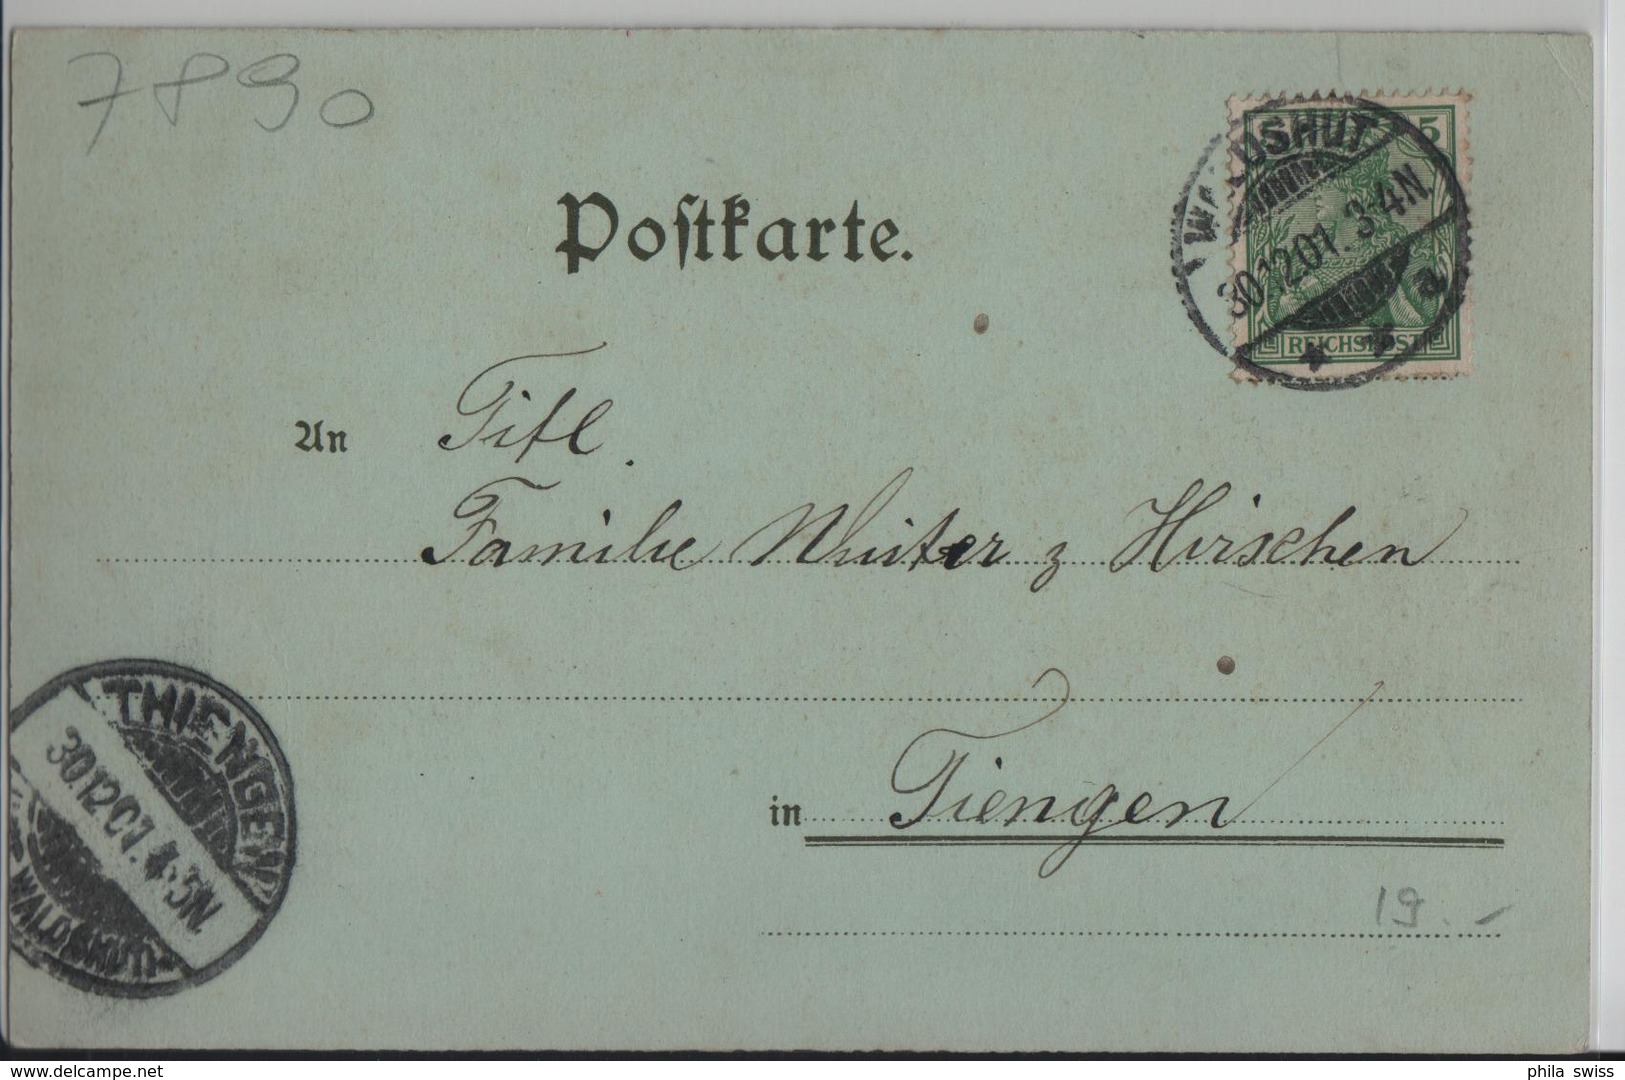 7890
Postkarte.
5 5
WALDSHUT
30.12.01. 3-4N
a
REICHSPOST
An Titl.
Familie Winter z Hirschen
THIENGEN
30.12.01. 4-5N.
WALDSHUT
in Tiengen
19.-
www.delcampe.net
phila swiss